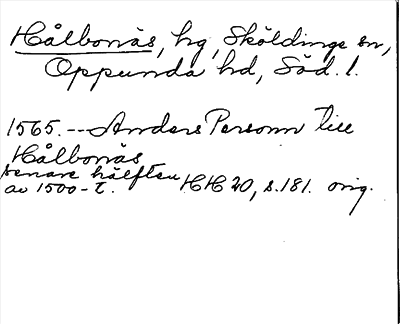 Hålbonäs, hg, Sköldinge sn,
Oppunda hd, Söd. l.
1565. -- Anders Personn till
Hålbonäs
senare hälften
av 1500-t. HH 20, s. 181. orig.